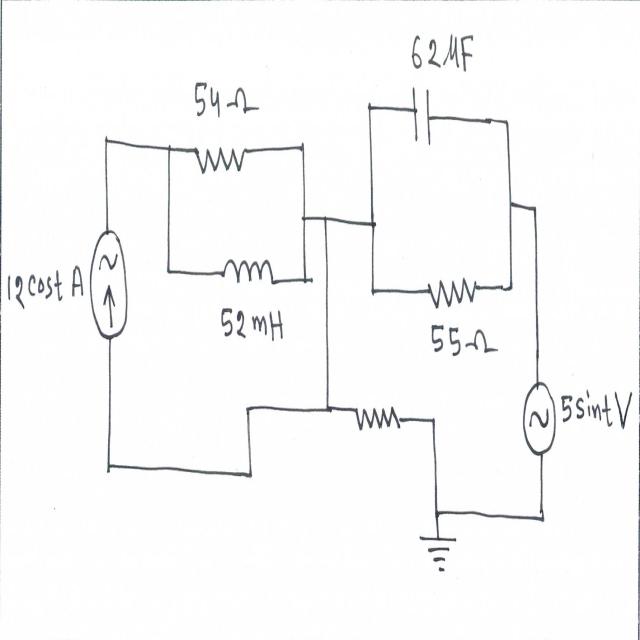 62µF
54Ω
12cost A
52mH
55Ω
5sint V